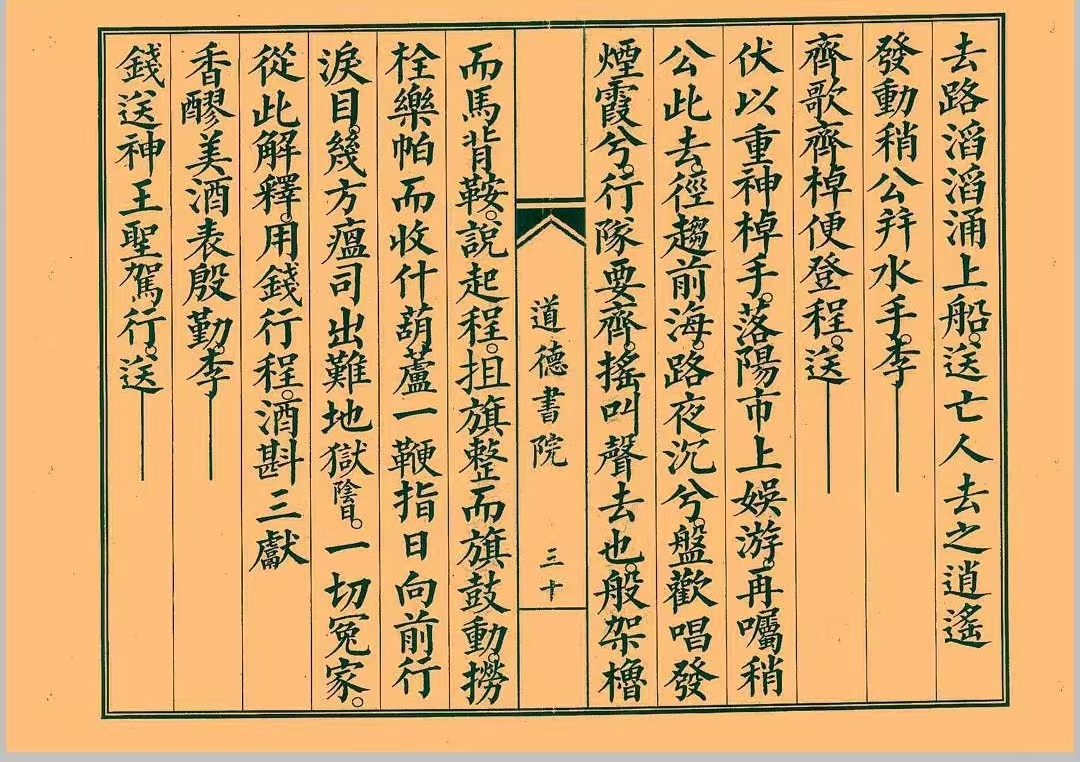 去路滔滔涌上船。送亡人去之逍遙
發動稍公拜水手。李
齊歌齊棹便登程。送
伏以重神棹手。落陽市上娛游。再囑稍
公此去。徑趨前海。路夜沉兮。盤歡唱發
煙霞兮。行隊要齊。搖叫聲去也。般架櫓
道德書院 三十
而馬背鞍。說起程。扭旗整而旗鼓動。撈
栓樂帕而收什葫蘆一鞭指日向前行
淚目。幾方瘟司出難地獄陰日。一切冤家。
從此解釋。用錢行程。酒斟三獻
香醪美酒表殷勤。李
錢送神王聖駕行。送